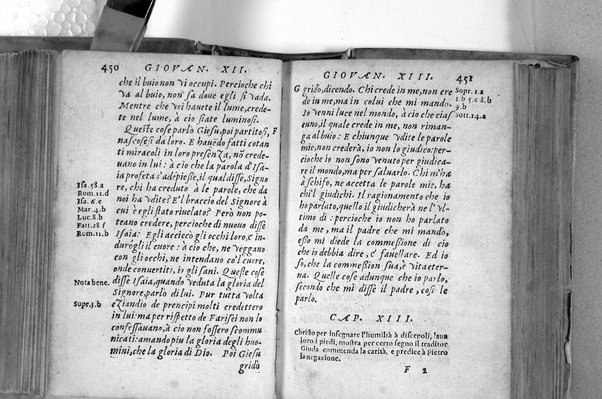 450 GIOVAN. XII.
che il buio non vi occupi. Percioche chi
va al buio, non sa doue egli si vada.
Mentre che voi hauete il lume, credete
nel lume, à cio siate luminosi.
Queste cose parlò Giesu, poi partitosi, F
nascosesi da loro. E hauēdo fatti cotanti
miracoli in loro presenza, nō credeuano
in lui: à cio che la parola d'Isaia
profeta s'adēpiesse, il qual disse, Signore,
Isa. 58.a
chi ha creduto à le parole, che da
Rom. 11.d
noi ha vdite? E'l braccio del Signore à
Isa. 6.e
cui è egli stato riuelato? Però non poteano
Mar. 4.b
credere, percioche di nuouo disse
Luc. 8.b
Isaia: Egli acciecò gli occhi loro, e indurò
Fatt. 28.f
gli il cuore: à cio che, ne veggano
Rom. 11.b
con gli occhi, ne intendano co'l cuore,
onde conuertiti, io gli sani. Queste cose
Nota bene.
disse Isaia, quando veduta la gloria del
Signore, parlò di lui. Pur tutta volta
Sopr. 5.b
eziandio de prencipi molti credettero
in lui: ma per rispetto de Farisei non lo
confessauano, à cio non fossero scommunicati:
amando piu la gloria degli huomini,
che la gloria di Dio. Poi Giesu
gridò
GIOVAN. XIII. 451
G gridò, dicendo. Chi crede in me, non crede
Sopr. 1.a
in me, ma in colui che mi mandò.
3.b 5.e 8.b
Io venni luce nel mondo, à cio che ciascuno,
9.b
Sott. 14.a
il quale crede in me, non rimanga
al buio: E chiunque vdite le parole
mie, non crederà, io non lo giudico: percioche
io non sono venuto per giudicare
il mondo, ma per saluarlo. Chi m'ha
à schifo, ne accetta le parole mie, ha
chi il giudichi. Il ragionamento che io
ho parlato, quello il giudicherà ne l'vltimo
dì: percioche io non ho parlato
da me, ma il padre che mi mandò,
esso mi diede la commessione di cio
che io debbia dire, è fauellare. Ed io
so, che la commession sua, è vita eterna.
Quelle cose adunque che io parlo,
secondo che mi disse il padre, così le
parlo.
CAP. XIII.
Christo per insegnare l'humiltà à discepoli, laua
loro i piedi, mostra per certo segno il traditor
Giuda commenda la carità, e predice à Pietro
la negatione.
F 2